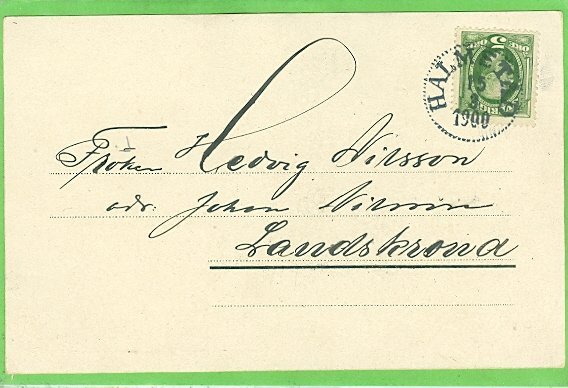 HALMSTAD
5
3
1900
Fröken Hedvig Nilsson
adr. Johan Nilsson
Landskrona